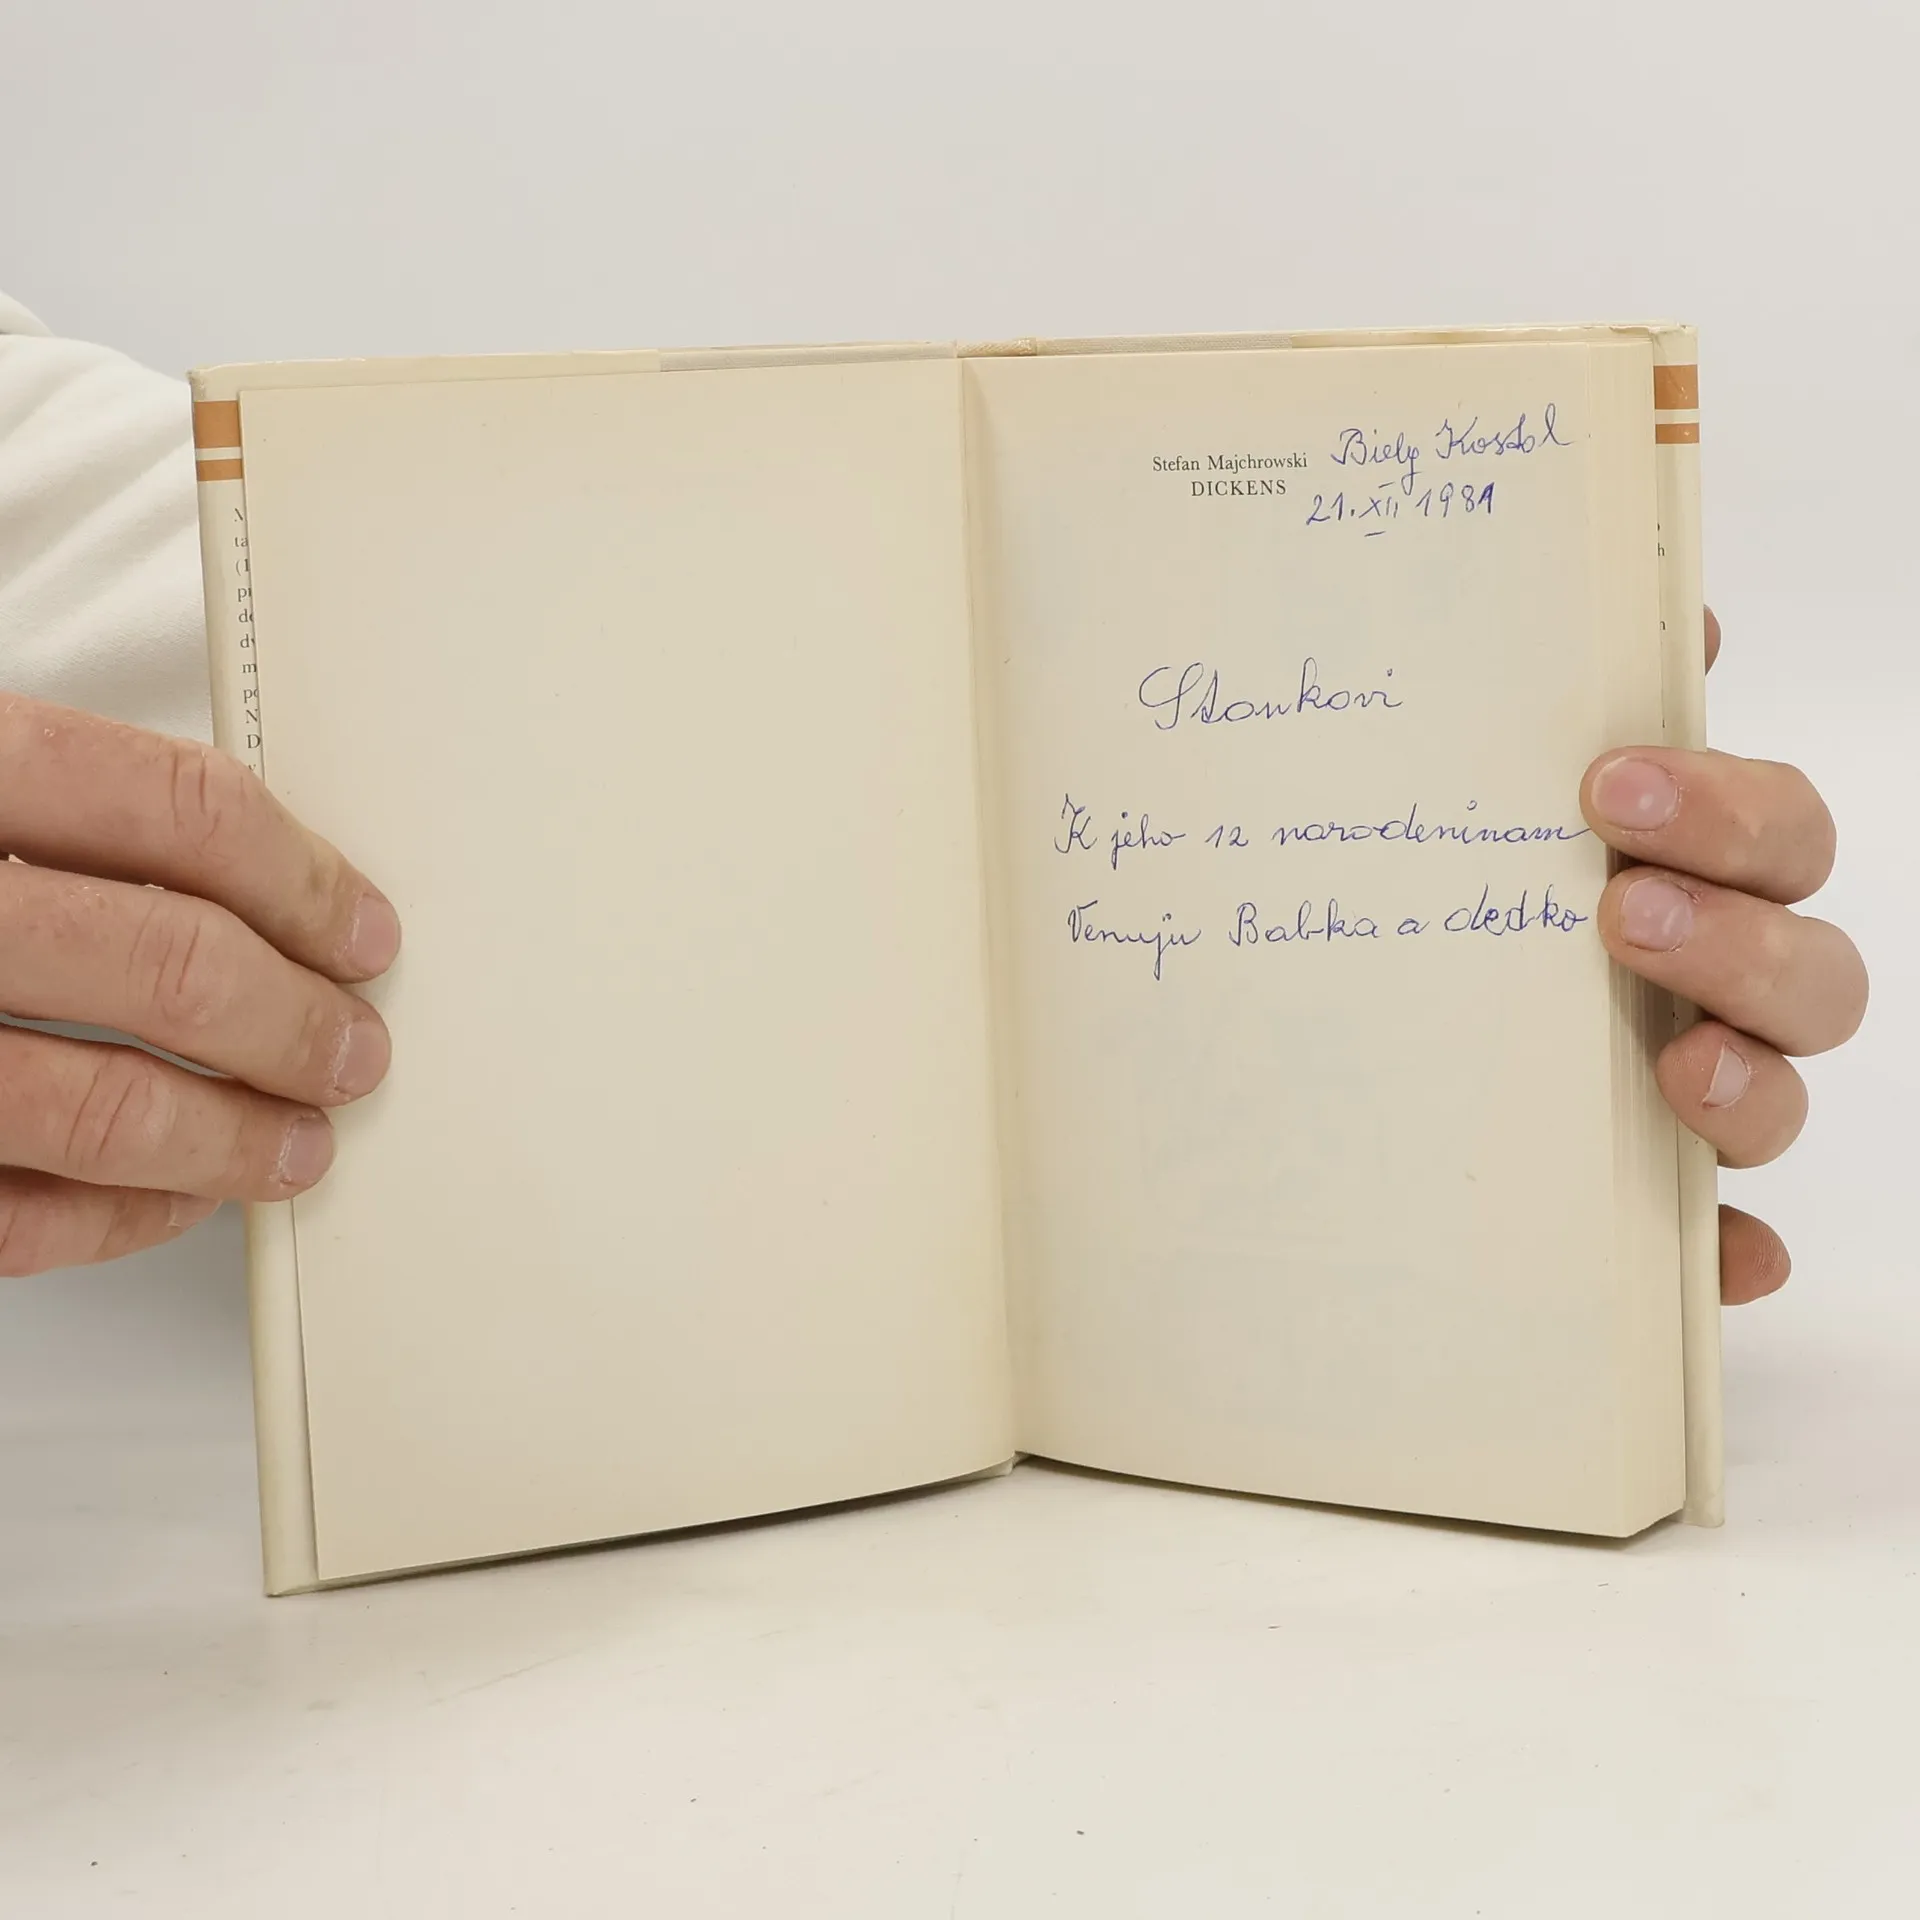 Stefan Majchrowski
DICKENS
Biely Kostol
21. XII 1981
Stankovi
K jeho 12 narodeninam
Venuju Babka a dedko
ta
(1
m
N
D
h